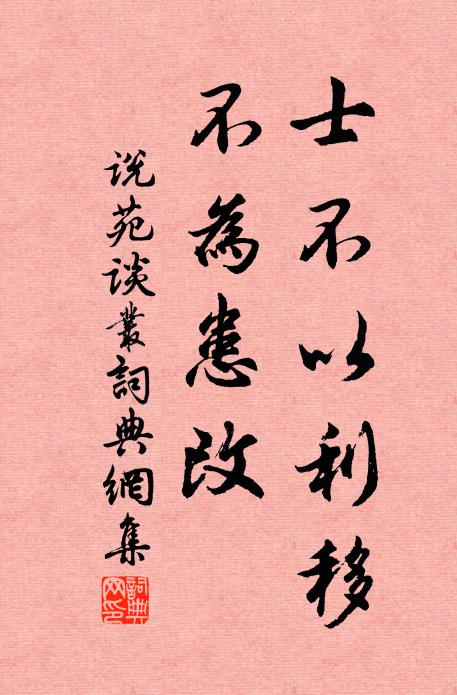 士不以利移
不為患改
说苑谈叢詞典網集
詞典網印